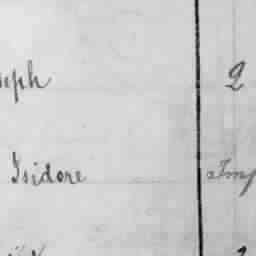 seph 2
Isidore Imp